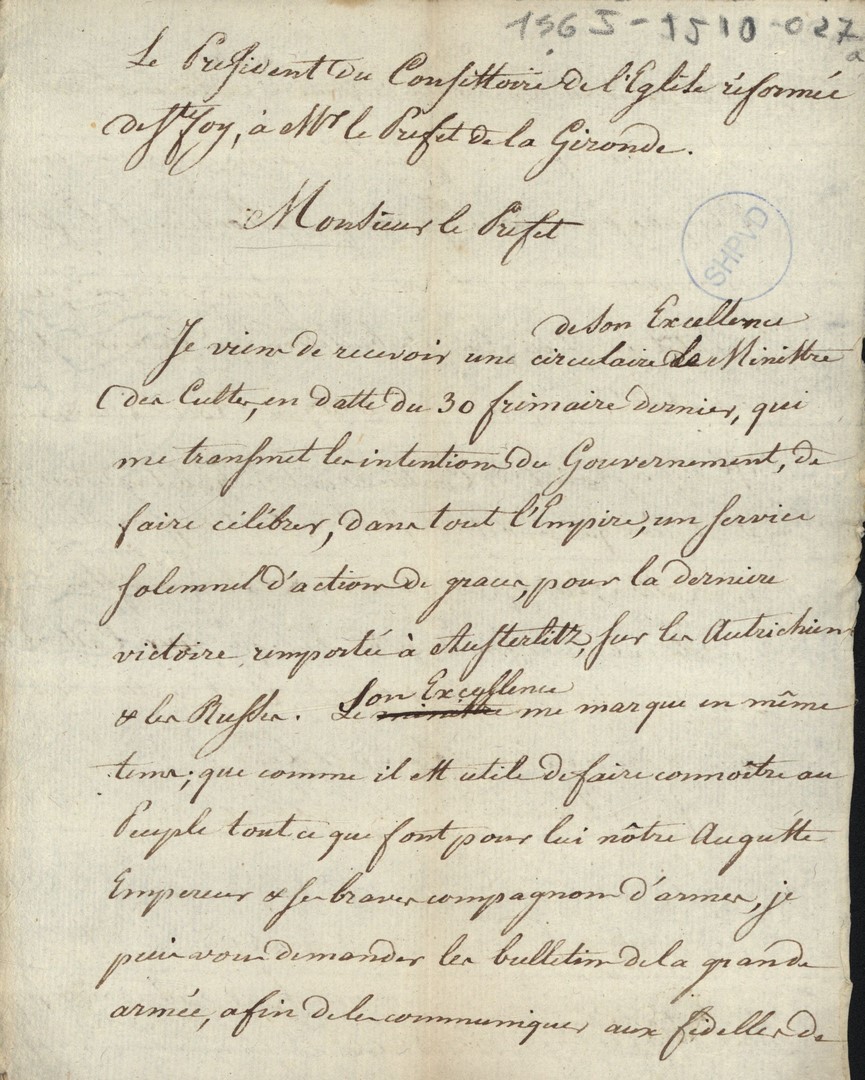 1565-1510-027
a
Le President du Consistoire de l'Eglise réformée
de Ste Foy, à Mr le Prefet de la Gironde.
Monsieur le Prefet
SHPVD
de Son Excellence
Je viens de recevoir une circulaire Ministre
des Cultes, en datte du 30 frimaire dernier, qui
me transmet les intentions du Gouvernement, de
faire célébrer, dans tout l'Empire, un service
solemnel d'action de graces, pour la derniere
victoire remportée à Austerlitz, sur les Autrichiens
& les Russes. Le ministre me marque en même
Son Excellence
tems; que comme il est utile de faire connoître au
Peuple tout ce que font pour lui nôtre Auguste
Empereur & ses braves compagnons d'armes, je
puis vous demander les bulletins de la grande
armée, afin de les communiquer aux fidelles de